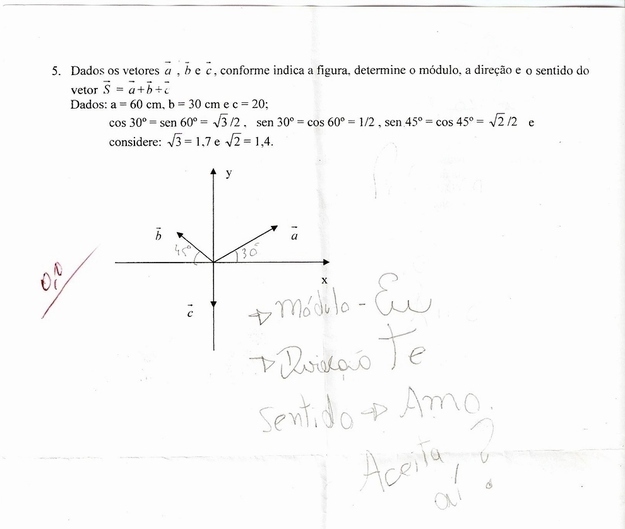 5. Dados os vetores a⃗ , b⃗ e c⃗, conforme indica a figura, determine o módulo, a direção e o sentido do
vetor S⃗ = a⃗+b⃗+c⃗
Dados: a = 60 cm, b = 30 cm e c = 20;
cos 30° = sen 60° = √3/2 , sen 30° = cos 60° = 1/2 , sen 45° = cos 45° = √2/2 e
considere: √3 = 1,7 e √2 = 1,4.
y
b⃗ a⃗
45° 30°
0,0
x
c⃗
→ Módulo - Eu
→ Direção Te
Sentido → Amo.
Aceita
aí?